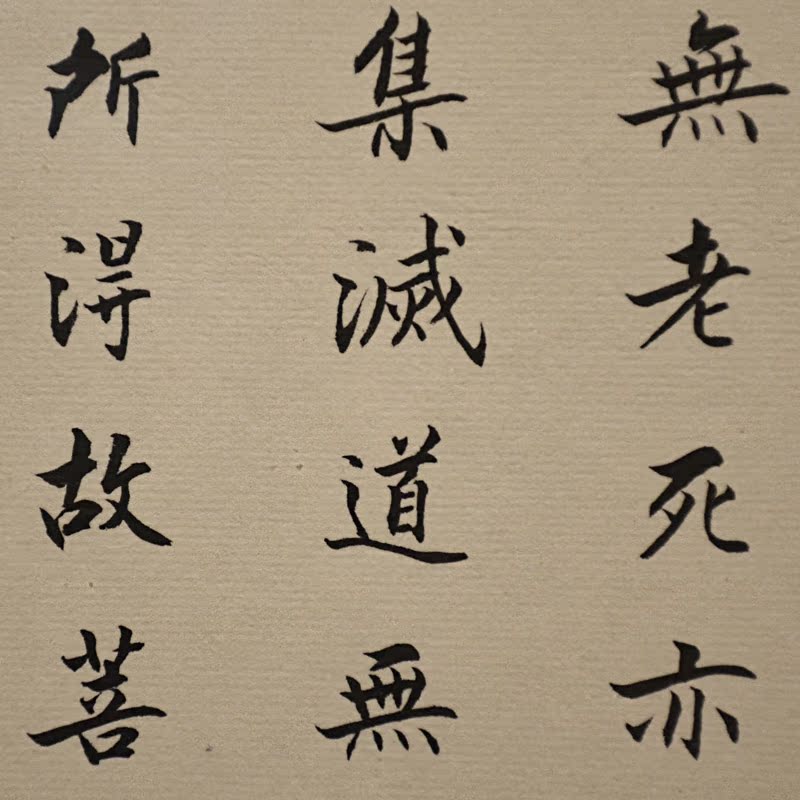 無老死亦
集滅道無
所淂故菩